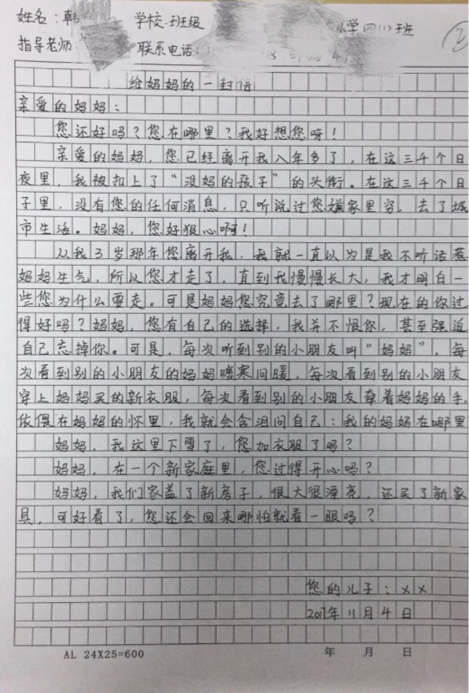 姓名：韩 学校.班级 小学四(1)班
指导老师 联系电话：
给妈妈的一封信
亲爱的妈妈：
您还好吗？您在哪里？我好想您呀！
亲爱的妈妈，您已经离开我八年多了，在这三千个日
夜里，我被扣上了“没妈的孩子”的头衔。在这三千个日
子里，没有您的任何消息，只听说过您嫌家里穷，去了城
市生活。妈妈，您好狠心啊！
从我3岁那年您离开我，我就一直以为是我不听话惹
妈妈生气，所以您才走了，直到我慢慢长大，我才明白一
些您为什么要走。可是妈妈您究竟去了哪里？现在的你过
得好吗？妈妈，您有自己的选择，我并不恨你，甚至强迫
自己忘掉你。可是，每次听到别的小朋友叫“妈妈”，每
次看到别的小朋友的妈妈嘘寒问暖，每次看到别的小朋友
穿上妈妈买的新衣服，每次看到别的小朋友牵着妈妈的手
依偎在妈妈的怀里，我就会含泪问自己：我的妈妈在哪里
妈妈，我这里下雪了，您加衣服了吗？
妈妈，在一个新家庭里，您过得开心吗？
妈妈，我们家盖了新房子，很大很漂亮，还买了新家
具，可好看了，您还会回来哪怕就看一眼吗？
您的儿子：××
2017年11月4日
AL 24X25=600 年 月 日